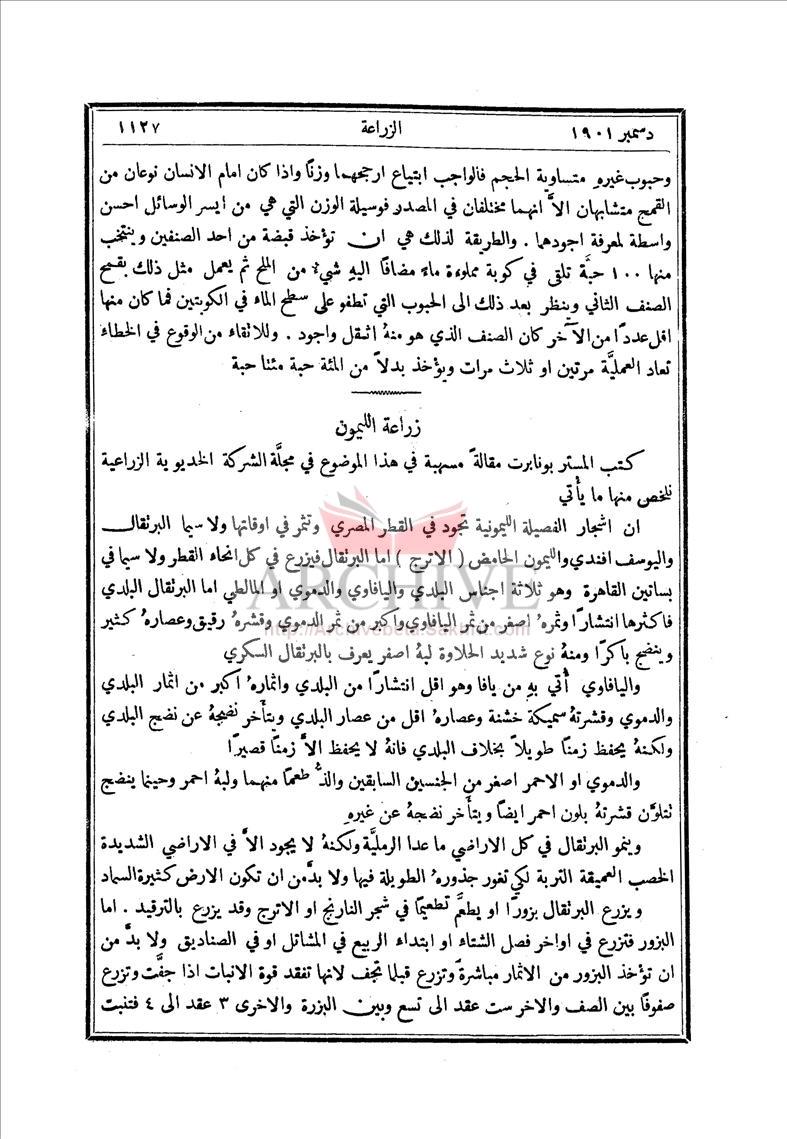 دسمبر ١٩٠١ الزراعة ١١٢٧
وحبوب غيره متساوية الحجم فالواجب ابتياع ارجحهما وزنًا واذا كان امام الانسان نوعان من
القمح متشابهان الاَّ انهما مختلفان في المصدر فوسيلة الوزن التي هي من ايسر الوسائل احسن
واسطة لمعرفة اجودهما . والطريقة لذلك هي ان تؤخذ قبضة من احد الصنفين وينتخب
منها ١٠٠ حبَّة تلقى في كوبة مملوءة ماءً مضافًا اليهِ شيءٌ من الملح ثم يعمل مثل ذلك بقمح
الصنف الثاني وينظر بعد ذلك الى الحبوب التي تطفو على سطح الماء في الكوبتين فما كان منها
اقل عددًا من الآخر كان الصنف الذي هو منهُ اثقل واجود . وللاتقاء من الوقوع في الخطاء
تعاد العمليَّة مرتين او ثلاث مرات ويؤخذ بدلاً من المئة حبة مئتا حبة
زراعة الليمون
كتب المستر بونابرت مقالةً مسهبة في هذا الموضوع في مجلَّة الشركة الخديوية الزراعية
نلخص منها ما يأْتي
ان اشجار الفصيلة الليمونية تجود في القطر المصري وتثمر في اوقاتها ولا سيما البرتقال
واليوسف افندي والليمون الحامض ( الاترج ) اما البرتقال فيزرع في كل انحاء القطر ولا سيما في
بساتين القاهرة وهو ثلاثة اجناس البلدي واليافاوي والدموي او المالطي اما البرتقال البلدي
فاكثرها انتشارًا وثمرهُ اصغر من ثمر اليافاوي واكبر من ثمر الدموي وقشرهُ رقيق وعصارهُ كثير
وينضج باكرًا ومنهُ نوع شديد الحلاوة لبهُ اصفر يعرف بالبرتقال السكري
واليافاوي أُتي بهِ من يافا وهو اقل انتشارًا من البلدي واثمارهُ اكبر من اثمار البلدي
والدموي وقشرتهُ سميكة خشنة وعصارهُ اقل من عصار البلدي ويتأَخر نضجهُ عن نضج البلدي
ولكنهُ يحفظ زمنًا طويلاً بخلاف البلدي فانهُ لا يحفظ الاَّ زمنًا قصيرًا
والدموي او الاحمر اصغر من الجنسين السابقين والذُّ طعمًا منهما ولبهُ احمر وحينما ينضج
تتلوَّن قشرتهُ بلون احمر ايضًا ويتأَخر نضجهُ عن غيرهِ
وينمو البرتقال في كل الاراضي ما عدا الرمليَّة ولكنهُ لا يجود الاَّ في الاراضي الشديدة
الخصب العميقة التربة لكي تغور جذورهُ الطويلة فيها ولا بدَّ من ان تكون الارض كثيرة السماد
ويزرع البرتقال بزورًا او يطعَّم تطعيمًا في شجر النارنج او الاترج وقد يزرع بالترقيد . اما
البزور فتزرع في اواخر فصل الشتاء او ابتداء الربيع في المشاتل او في الصناديق ولا بدَّ من
ان تؤخذ البزور من الاثمار مباشرةً وتزرع قبلما تجف لانها تفقد قوة الانبات اذا جفَّت وتزرع
صفوفًا بين الصف والاخر ست عقد الى تسع وبين البزرة والاخرى ٣ عقد الى ٤ فتنبت
ARCHIVE
http://Archivebeta.Sakhrit.com